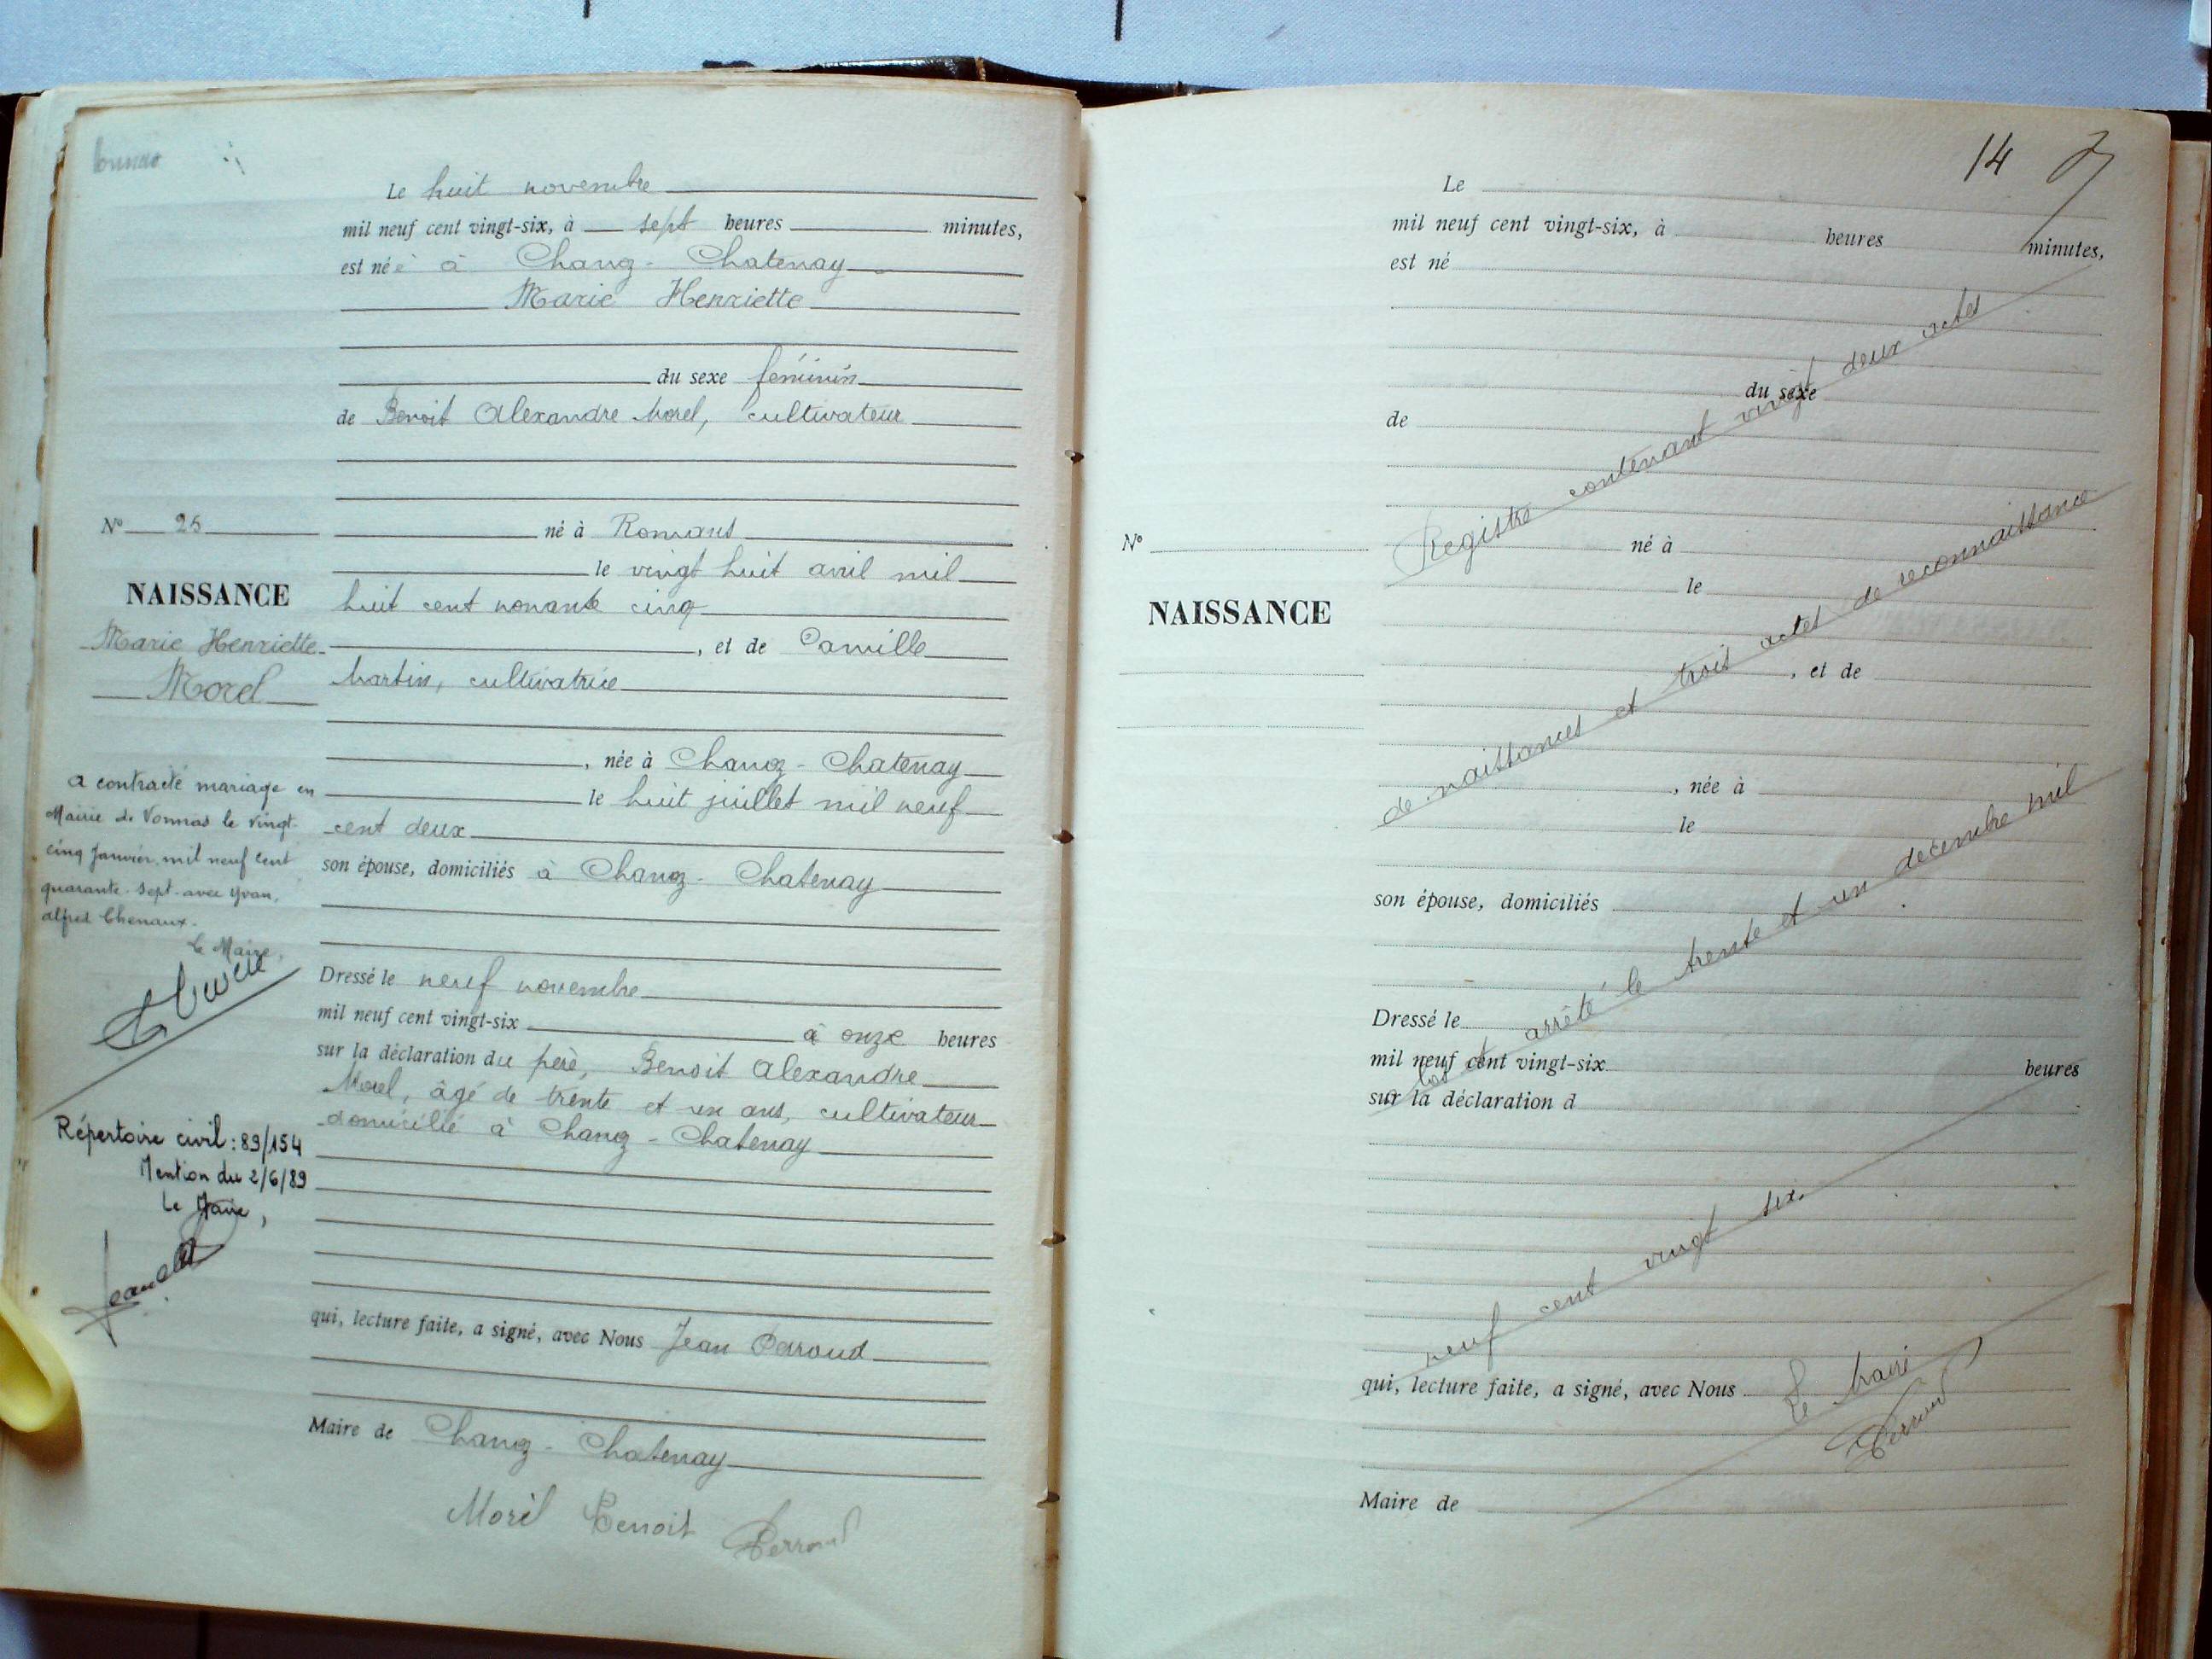 Le huit novembre
mil neuf cent vingt-six, à sept heures minutes,
est née à Chanoz - Chatenay
Marie Henriette
du sexe féminin
de Benoit Alexandre Morel, cultivateur
N° 25
né à Romans
le vingt huit avril mil
NAISSANCE
huit cent nonante cinq
Marie Henriette
Morel
, et de Camille
Martin, cultivatrice
, née à Chanoz - Chatenay
le huit juillet mil neuf
cent deux
son épouse, domiciliés à Chanoz - Chatenay
a contracté mariage en
Mairie de Vonnas le vingt-
cinq Janvier mil neuf cent
quarante-sept avec Yvan,
alfred Chenaux.
Le Maire,
Dressé le neuf novembre
mil neuf cent vingt-six à onze heures
sur la déclaration du père, Benoit Alexandre
Morel, âgé de trente et un ans, cultivateur
domicilié à Chanoz - Chatenay
Répertoire civil : 89/154
Mention du 2/6/89
Le Maire,
qui, lecture faite, a signé, avec Nous Jean Perroud
Maire de Chanoz - Chatenay
Morel Benoit Perroud
14
Le
mil neuf cent vingt-six, à heures minutes,
est né
du sexe
de
N°
né à
le
NAISSANCE
, et de
, née à
le
son épouse, domiciliés
Dressé le
mil neuf cent vingt-six heures
sur la déclaration d
qui, lecture faite, a signé, avec Nous
Maire de
Registre contenant vingt deux actes
de naissances et trois actes de reconnaissance
clos et arrêté le trente et un décembre mil
neuf cent vingt six.
Le Maire
Perroud